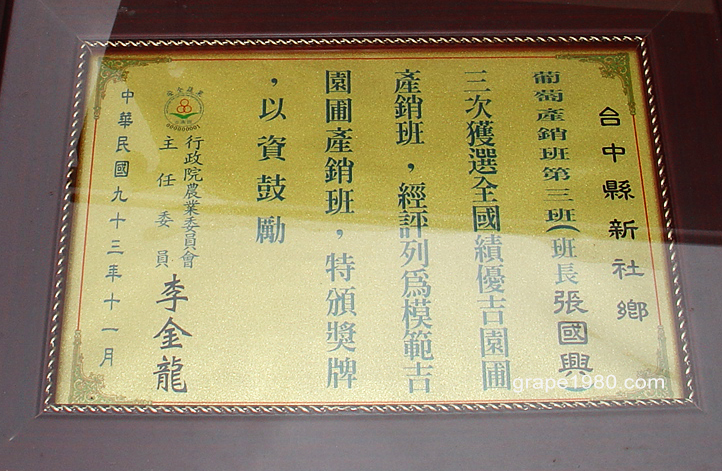 台中縣新社鄉
葡萄產銷班第三班(班長張國興)
三次獲選全國績優吉園圃
產銷班，經評列為模範吉
園圃產銷班，特頒獎牌
，以資鼓勵
行政院農業委員會
主任委員 李金龍
中華民國九十三年十一月
grape1980.com